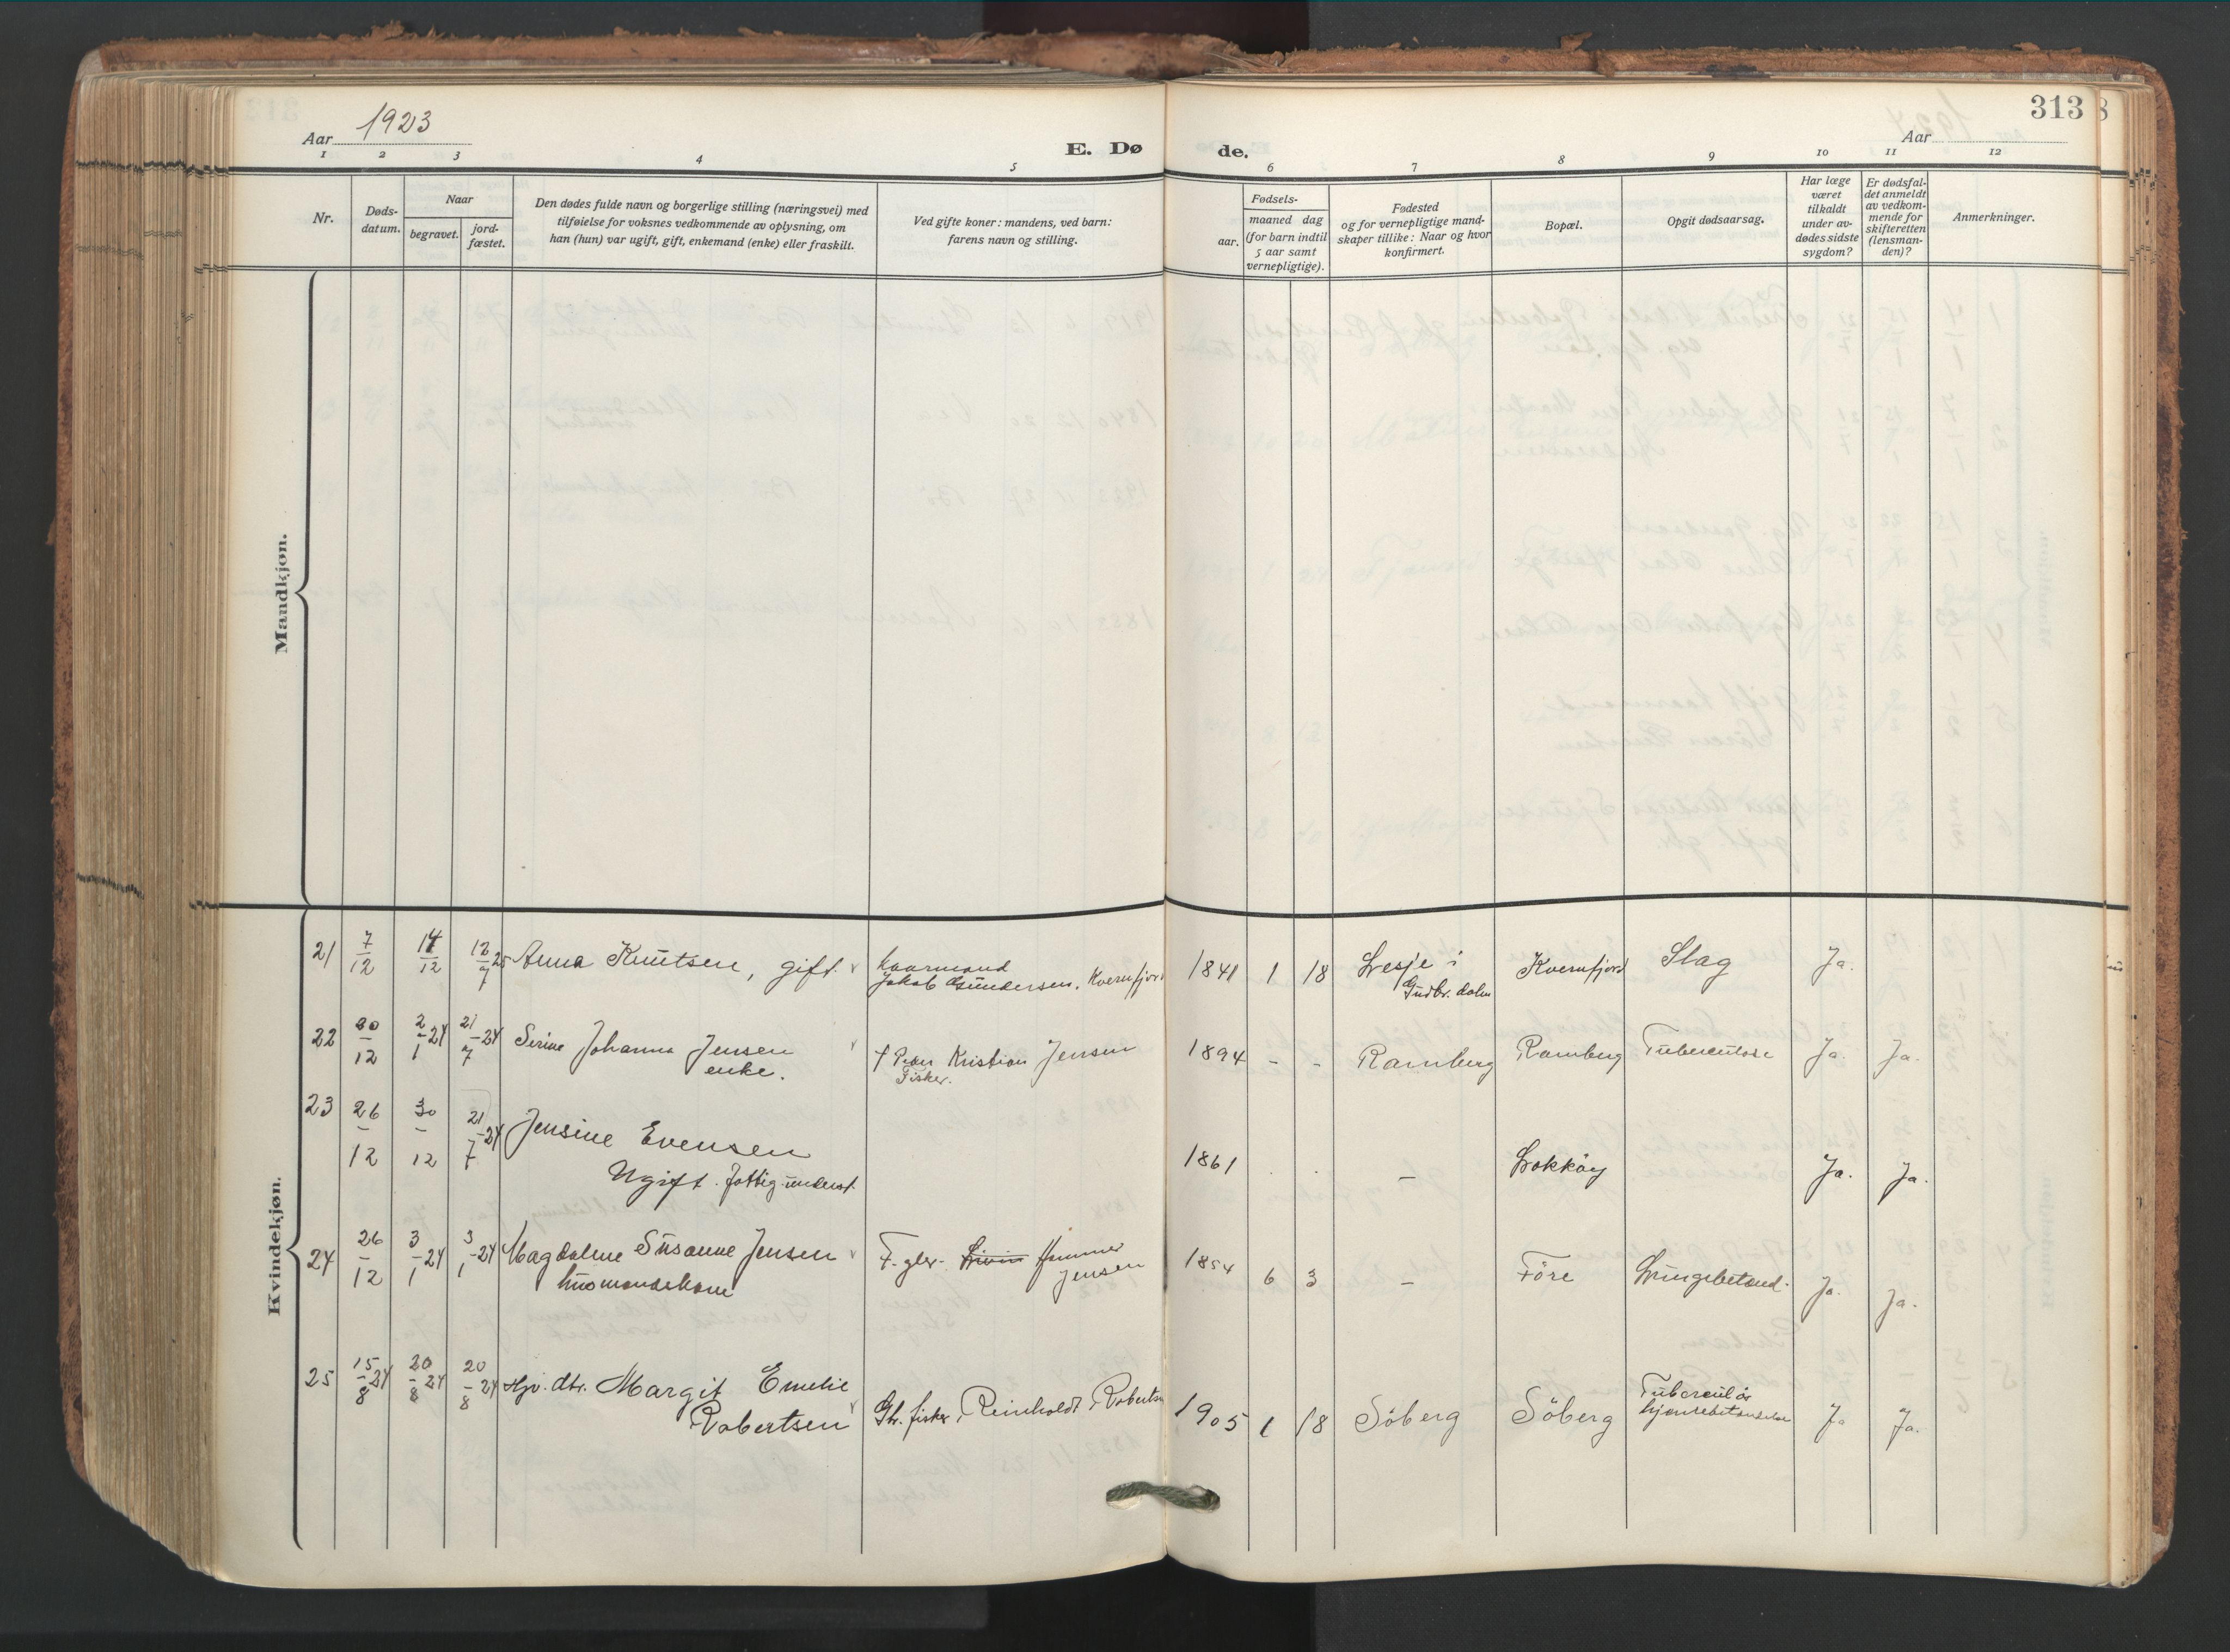 Aar 1923
E. Dø
de.
Aar
313
1 2 3 4 5 6 7 8 9 10 11 12
Nr.
Døds-
datum.
Naar
begravet.
jord-
fæstet.
Den dødes fulde navn og borgerlige stilling (næringsvei) med
tilføielse for voksnes vedkommende av oplysning, om
han (hun) var ugift, gift, enkemand (enke) eller fraskilt.
Ved gifte koner: mandens, ved barn:
farens navn og stilling.
Fødsels-
aar.
maaned dag
(for barn indtil
5 aar samt
vernepligtige).
Fødested
og for vernepligtige mand-
skaper tillike: Naar og hvor
konfirmert.
Bopæl.
Opgit dødsaarsag.
Har læge
været
tilkaldt
under av-
dødes sidste
sygdom?
Er dødsfal-
det anmeldt
av vedkom-
mende for
skifteretten
(lensman-
den)?
Anmerkninger.
Mandkjøn.
Kvindekjøn.
21 7/12 14/12 12/7 25 Anna Knutsen, gift. Kaarmand
Jakob Gundersen, Kvernfjord 1841 1 18 Lesje i
Gudbr. dalen Kvernfjord Slag Ja.
22 20/12 2/1-24 21/7-24 Serine Johanna Jensen
enke. † Peder Kristian Jensen
Fisker. 1894 - - Ramberg Ramberg Tuberculose Ja. Ja.
23 26/12 30/12 21/7-24 Jensine Evensen
Ugift. Fattig underst. 1861 . . - Ja. Ja.
24 26/12 3/1-24 3/1-24 Magdalene Susanne Jensen
husmandskone F. gbr. Hammer
Jensen 1854 6 3 - Före Lungebetænd. Ja. Ja.
25 15/8-24 20/8-24 20/8-24 Hjv. dtr. Margit Emelie
Robertsen Gbr. fisker Reinholdt Robertsen 1905 1 18 Söberg Söberg Tuberculös
hjernebetændelse Ja Ja.